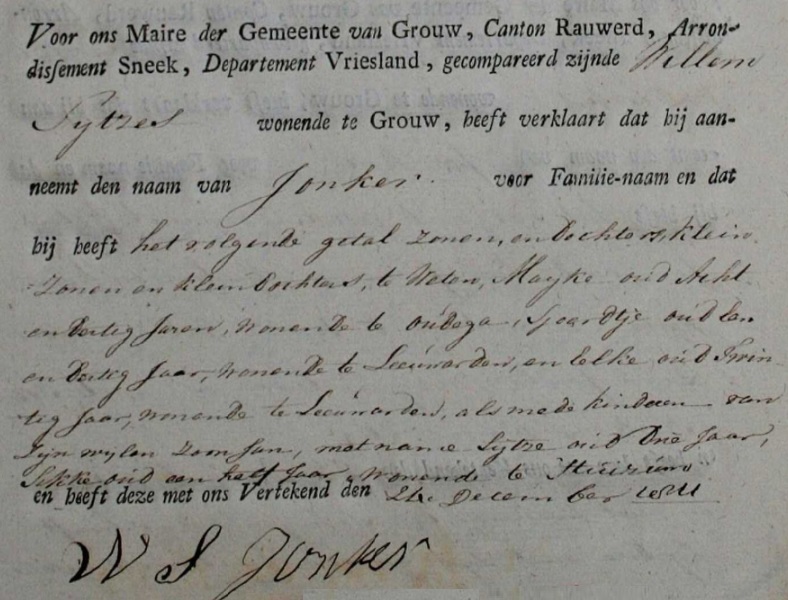 Voor ons Maire der Gemeente van Grouw, Canton Rauwerd, Arron-
dissement Sneek, Departement Vriesland, gecompareerd zijnde Willem
Sytzes wonende te Grouw, heeft verklaart dat hij aan-
neemt den naam van Jonker voor Familie-naam en dat
hij heeft het volgende getal zonen, en Dochters, klein
Zonen en klein Dochters, te Weten, Mayke oud Acht
en Dertig Jaren, wonende te oudega, Sjoerdtje oud Een
en Dertig Jaar, wonende te Leeuwarden, en Eelke oud Twin-
tig Jaar, wonende te Leeuwarden, als mede kinderen van
Zijn wylen Zoon Jan, met name Sytze oud Drie Jaar,
Sikke oud een half Jaar, wonende te
en heeft deze met ons Vertekend den December 1811
W S Jonker